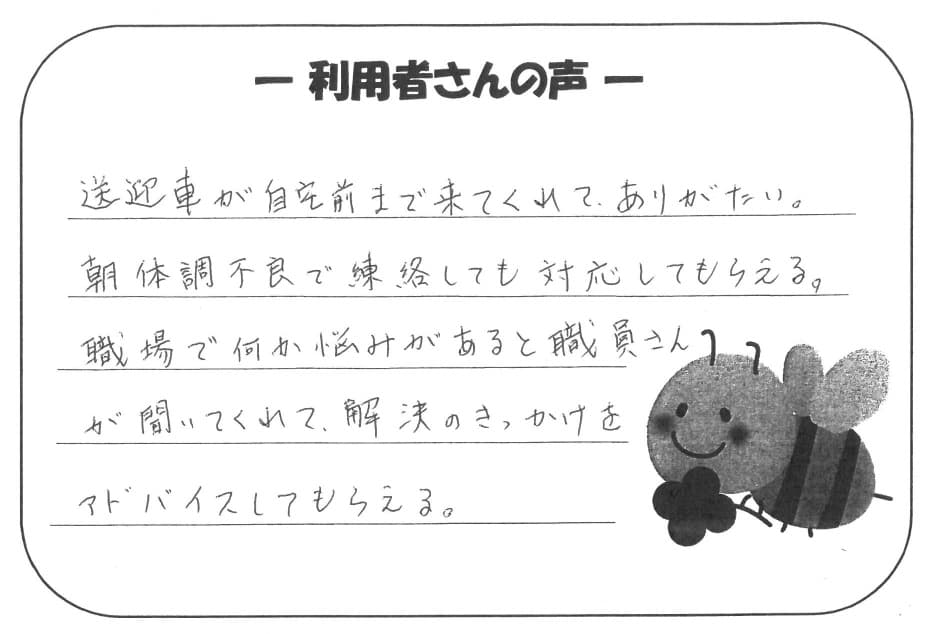 ― 利用者さんの声 ―
送迎車が自宅前まで来てくれて、ありがたい。
朝体調不良で練絡しても対応してもらえる。
職場で何か悩みがあると職員さん
が聞いてくれて、解決のきっかけを
アドバイスしてもらえる。